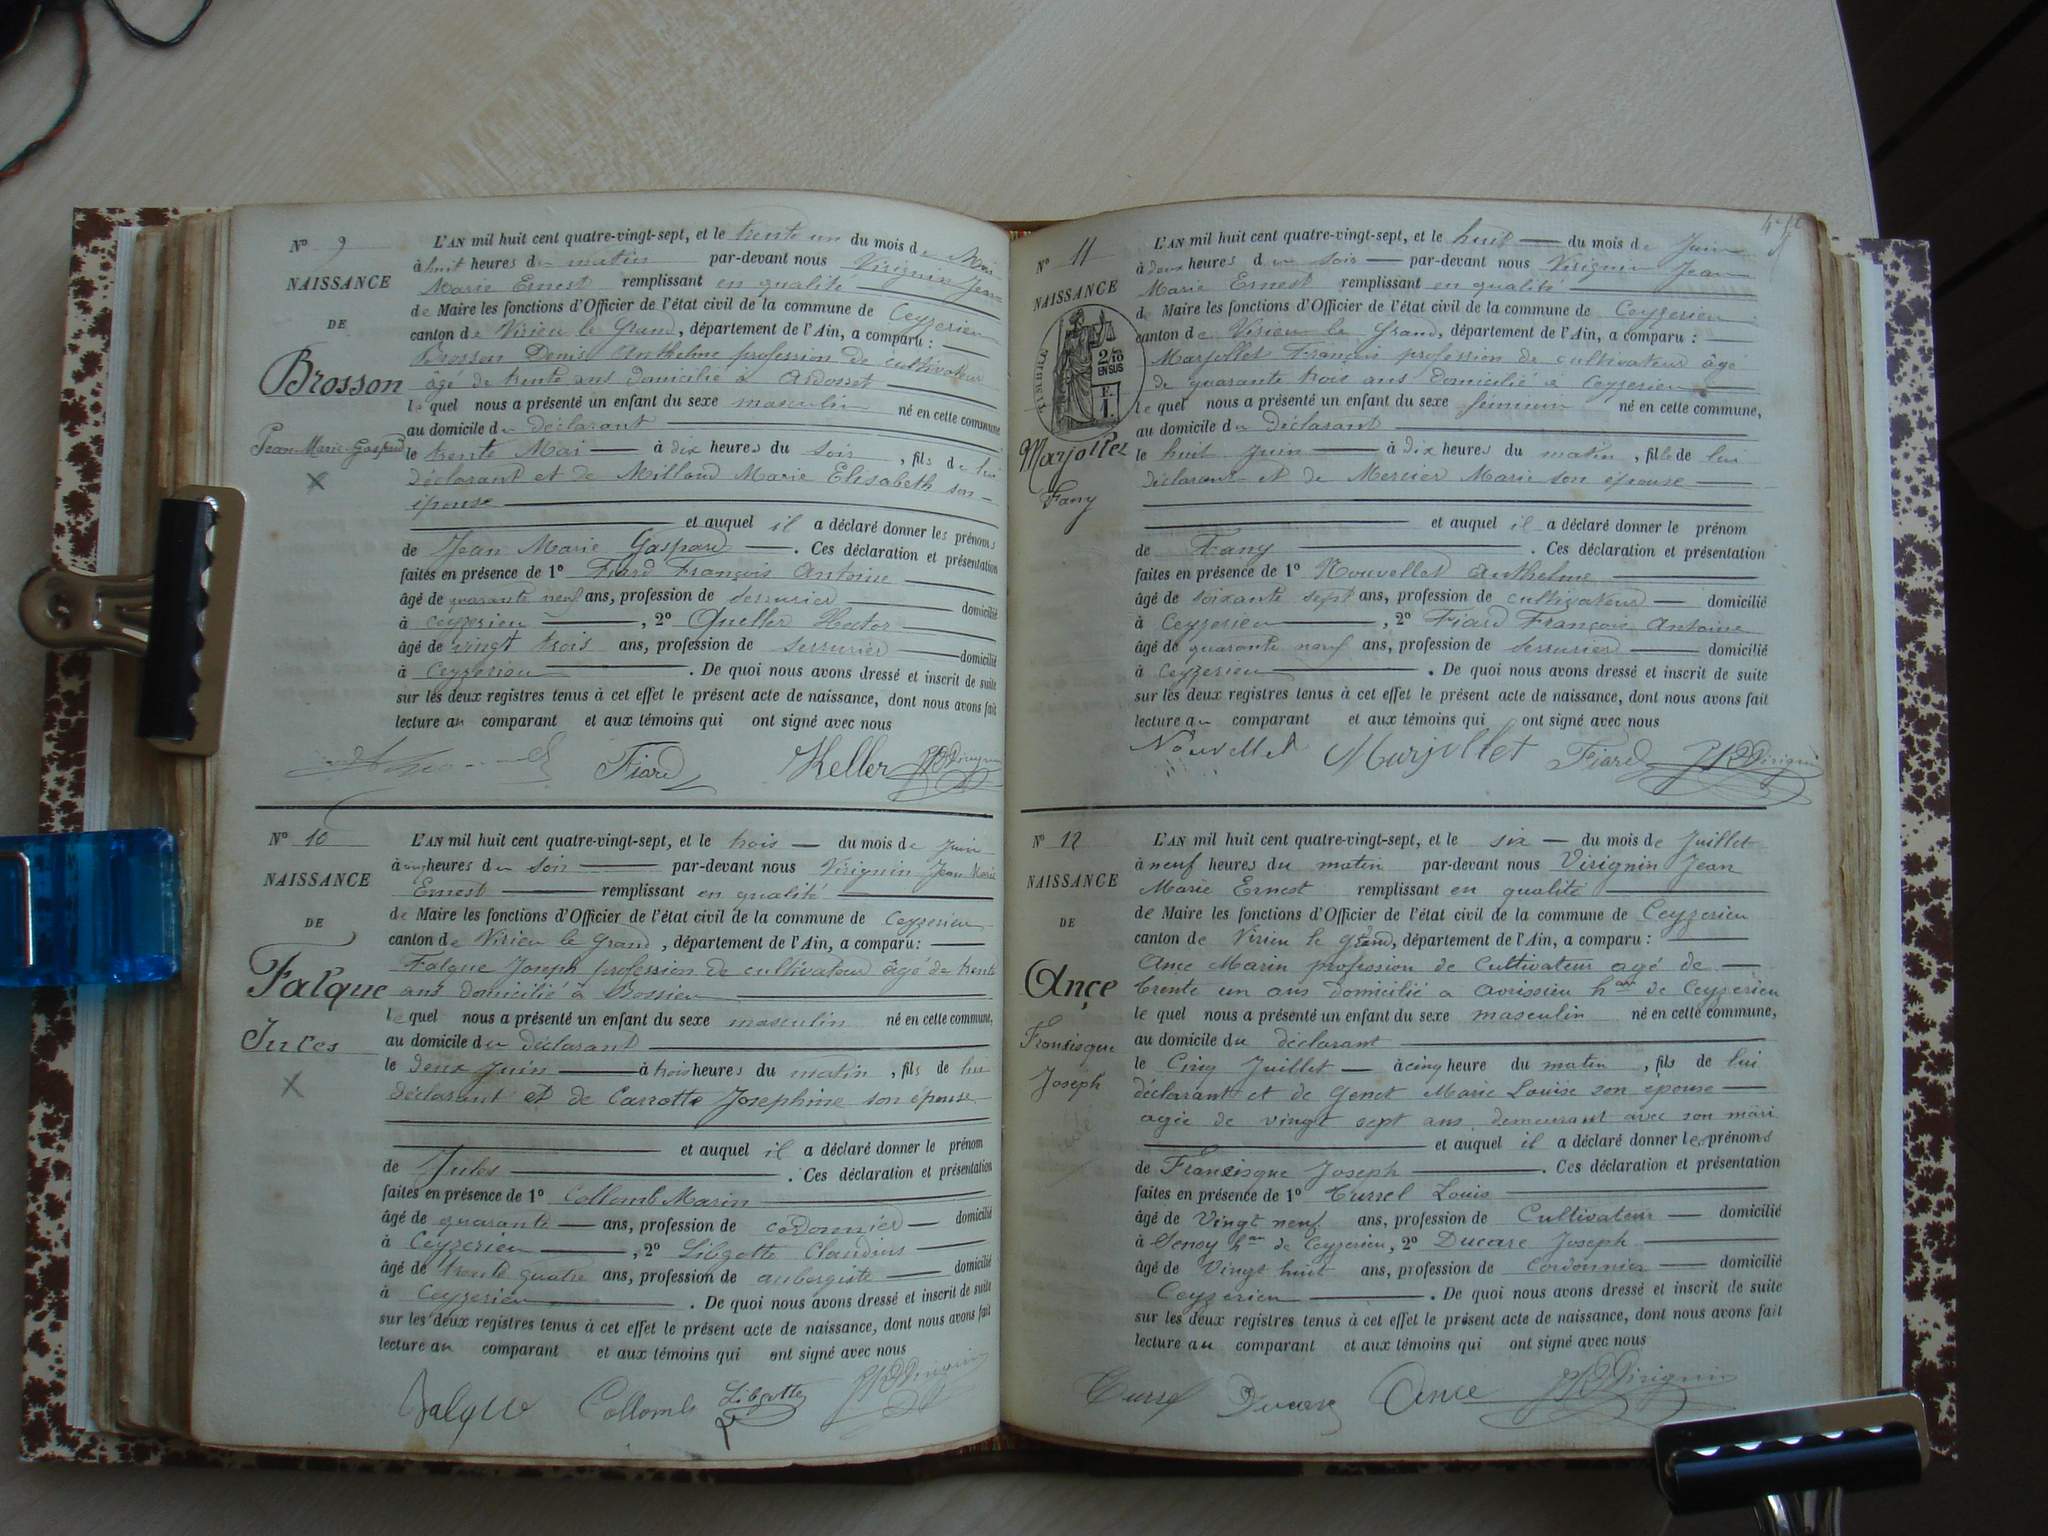 N° 9
NAISSANCE
DE
Brosson
Jean-Marie-Gaspard
L'AN mil huit cent quatre-vingt-sept, et le trente un du mois de Mai
à huit heures du matin par-devant nous Virignin Jean
Marie Ernest remplissant en qualité
de Maire les fonctions d'Officier de l'état civil de la commune de Ceyzerieu
canton de Virieu le Grand, département de l'Ain, a comparu :
Brosson Denis Anthelme profession de cultivateur
âgé de trente ans domicilié à Ardosset
lequel nous a présenté un enfant du sexe masculin né en cette commune,
au domicile du déclarant
le trente Mai à dix heures du soir, fils de lui
déclarant et de Milland Marie Elisabeth son
épouse
et auquel il a déclaré donner les prénoms
de Jean Marie Gaspard. Ces déclaration et présentation
faites en présence de 1° Fiard François Antoine
âgé de quarante neuf ans, profession de serrurier domicilié
à Ceyzerieu, 2° Queller Hector
âgé de vingt trois ans, profession de serrurier domicilié
à Ceyzerieu. De quoi nous avons dressé et inscrit de suite
sur les deux registres tenus à cet effet le présent acte de naissance, dont nous avons fait
lecture au comparant et aux témoins qui ont signé avec nous
Fiard Keller Virignin
N° 10
NAISSANCE
DE
Falque
Jules
L'AN mil huit cent quatre-vingt-sept, et le trois du mois de Juin
à heures du soir par-devant nous Virignin Jean Marie
Ernest remplissant en qualité
de Maire les fonctions d'Officier de l'état civil de la commune de Ceyzerieu
canton de Virieu le Grand, département de l'Ain, a comparu :
Falque Joseph profession de cultivateur âgé de trente
ans domicilié à Bossieu
lequel nous a présenté un enfant du sexe masculin né en cette commune,
au domicile du déclarant
le deux Juin à trois heures du matin, fils de lui
déclarant et de Carrotte Josephine son épouse
et auquel il a déclaré donner le prénom
de Jules. Ces déclaration et présentation
faites en présence de 1° Collomb Marin
âgé de quarante ans, profession de cordonnier domicilié
à Ceyzerieu, 2° Libgotte Claudius
âgé de trente quatre ans, profession de aubergiste domicilié
à Ceyzerieu. De quoi nous avons dressé et inscrit de suite
sur les deux registres tenus à cet effet le présent acte de naissance, dont nous avons fait
lecture au comparant et aux témoins qui ont signé avec nous
Falque Collomb Libgotte Virignin
N° 11
NAISSANCE
TIMBRE
2/10
EN SUS
F.
1.
Marjollet
Fany
L'AN mil huit cent quatre-vingt-sept, et le huit du mois de Juin
à deux heures du soir par-devant nous Virignin Jean
Marie Ernest remplissant en qualité
de Maire les fonctions d'Officier de l'état civil de la commune de Ceyzerieu
canton de Virieu le Grand, département de l'Ain, a comparu :
Marjollet François profession de cultivateur âgé
de quarante trois ans domicilié à Ceyzerieu
lequel nous a présenté un enfant du sexe féminin né en cette commune,
au domicile du déclarant
le huit Juin à dix heures du matin, fille de lui
déclarant et de Mercier Marie son épouse
et auquel il a déclaré donner le prénom
de Fany. Ces déclaration et présentation
faites en présence de 1° Nouvellet Anthelme
âgé de soixante sept ans, profession de cultivateur domicilié
à Ceyzerieu, 2° Fiard François Antoine
âgé de quarante neuf ans, profession de serrurier domicilié
à Ceyzerieu. De quoi nous avons dressé et inscrit de suite
sur les deux registres tenus à cet effet le présent acte de naissance, dont nous avons fait
lecture au comparant et aux témoins qui ont signé avec nous
Nouvellet Marjollet Fiard Virignin
N° 12
NAISSANCE
DE
Ançe
Francisque
Joseph
L'AN mil huit cent quatre-vingt-sept, et le six du mois de Juillet
à neuf heures du matin par-devant nous Virignin Jean
Marie Ernest remplissant en qualité
de Maire les fonctions d'Officier de l'état civil de la commune de Ceyzerieu
canton de Virieu le Grand, département de l'Ain, a comparu :
Ance Marin profession de Cultivateur agé de
trente un ans domicilié a Avrissieu hau de Ceyzerieu
lequel nous a présenté un enfant du sexe masculin né en cette commune,
au domicile du déclarant
le Cinq Juillet à cinq heure du matin, fils de lui
déclarant et de Genet Marie Louise son épouse
agée de vingt sept ans demeurant avec son mari
et auquel il a déclaré donner les prénoms
de Francisque Joseph. Ces déclaration et présentation
faites en présence de 1° Turrel Louis
âgé de Vingt neuf ans, profession de Cultivateur domicilié
à Senoy hau de Ceyzerieu, 2° Ducare Joseph
âgé de Vingt huit ans, profession de Cordonnier domicilié
Ceyzerieu. De quoi nous avons dressé et inscrit de suite
sur les deux registres tenus à cet effet le présent acte de naissance, dont nous avons fait
lecture au comparant et aux témoins qui ont signé avec nous
Turrel Ducare Ance Virignin